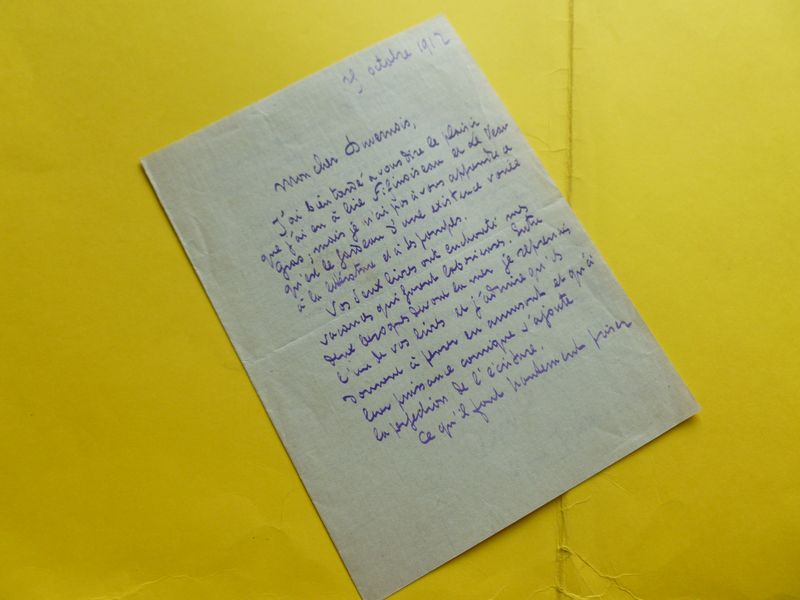 25 octobre 1912
Mon cher Duvernois,
J'ai bien tardé à vous dire le plaisir
que j'ai eu à lire Fifinoiseau et le Veau
gras ; mais je n'ai pas à vous apprendre ce
qu'est le fardeau d'une existence vouée
à la littérature et à ses pompes.
Vos deux livres ont enchanté mes
vacances qui furent laborieuses. Entre
deux besognes devant la mer je reprenais
l'un de vos livres et j'admire qu'ils
donnent à penser en amusant et qu'à
leur puissance comique s'ajoute
la perfection de l'écriture.
Ce qu'il faut hautement priser